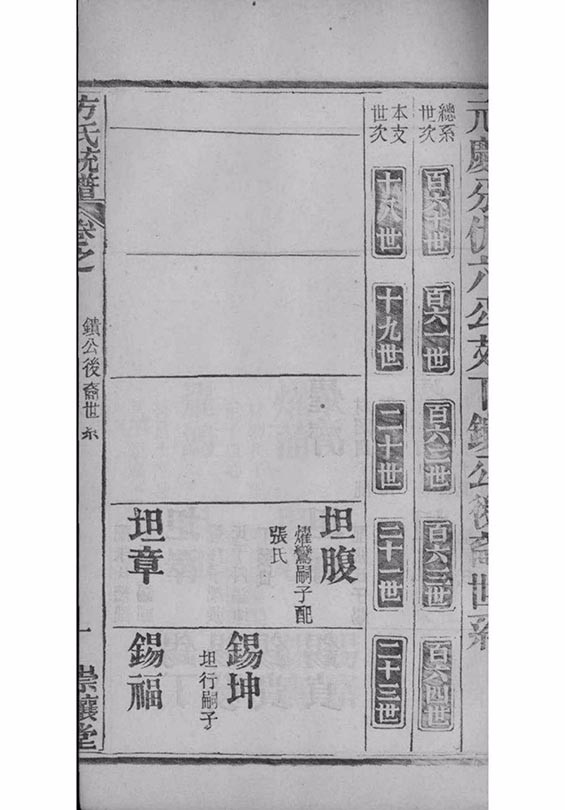 元慶分伯六公㧑下鐀公後裔世系
總系世次
百六十世
百六一世
百六二世
百六三世
百六四世
本支世次
十八世
十九世
二十世
二十一世
二十三世
坦腹
燿鸞嗣子配
張氏
坦章
錫坤
坦行嗣子
錫福
方氏統譜
卷之
鐀公後裔世系
一
崇讓堂